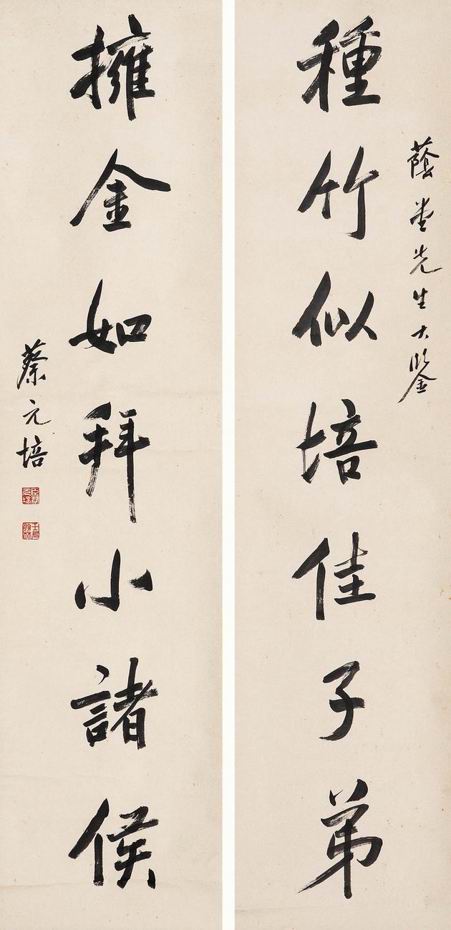 蔭堂先生大鑒
種竹似培佳子弟
擁金如拜小諸侯
蔡元培